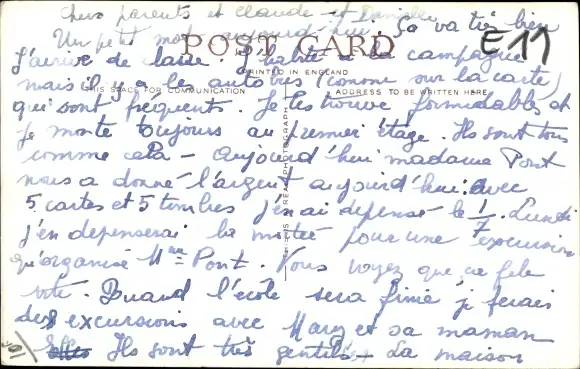 Chers parents et Claude et Danielle
Un petit mot aujourd'hui. Ça va très bien
POST CARD
E 11
J'arrive de classe. J'habite à la campagne
PRINTED IN ENGLAND
mais il y a les autobus (comme sur la carte)
THIS SPACE FOR COMMUNICATION ADDRESS TO BE WRITTEN HERE
qui sont fréquents. Je les trouve formidables et
je monte toujours au premier étage. Ils sont tous
comme cela - Aujourd'hui madame Pont
nous a donné l'argent aujourd'hui. Avec
5 cartes et 5 timbres j'en ai dépensé le 1/7. Lundi
j'en dépenserai la moitié pour une excursion
qu'organise Mme Pont. Vous voyez que ça file
vite. Quand l'école sera finie je ferais
des excursions avec Mary et sa maman
Ils sont très gentils - La maison
A REAL PHOTOGRAPH